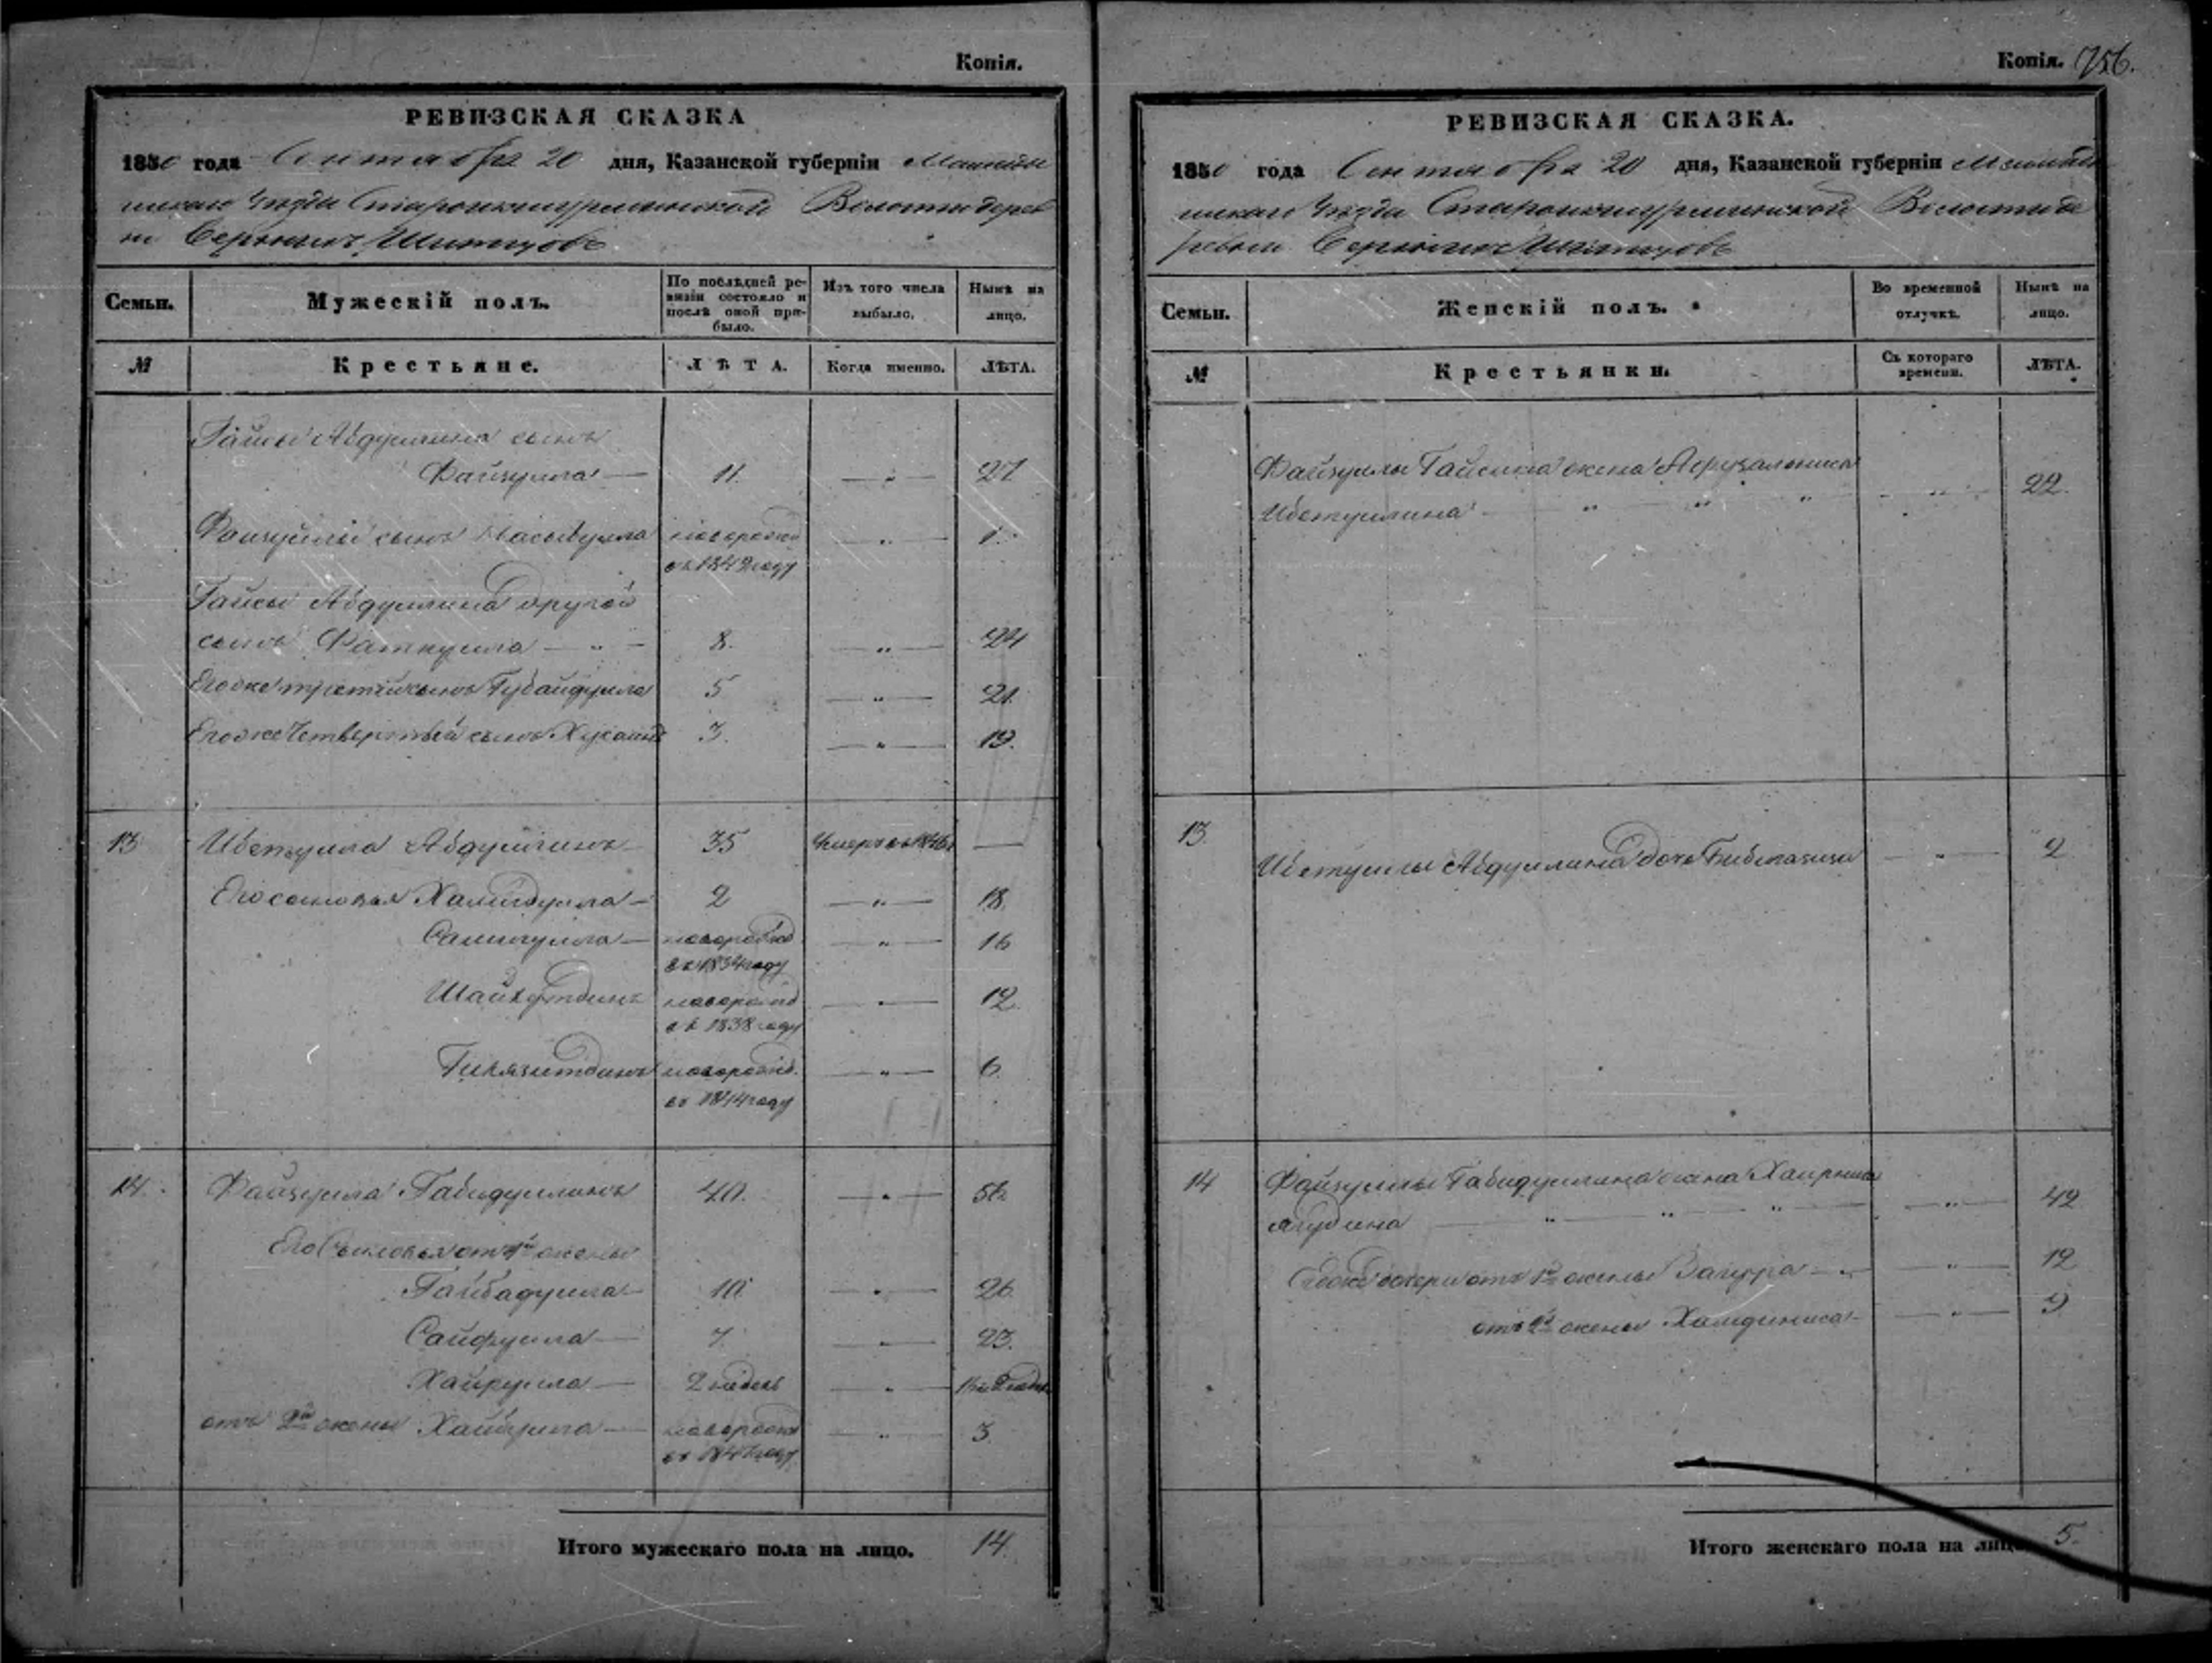 Копія.
РЕВИЗСКАЯ СКАЗКА
1850 года Сентября 20 дня, Казанской губерніи Мамады
шскаго Уезда Волости дерев
ни Верхнихъ Шитцовъ
Семьи.
Мужескій полъ.
По послѣдней ре-
визіи состояло и
послѣ оной при-
было.
Изъ того числа
выбыло.
Нынѣ на
лицо.
№
Крестьяне.
ЛѢТА.
Когда именно.
ЛѢТА.
Гайсы Абдуллина сынъ
Файзулла 11 — „ — 27
Файзуллы сынъ Насыбулла новорожд — „ — 1
въ 1849 году
Гайсы Абдуллина другой
сынъ Фаткулла — „ — 8. — „ — 24
Егоже третій сынъ Губайдулла 5 — „ — 21.
Егоже четвертый сынъ 3. — „ — 19.
13 Ибетулла Абдуллинъ 35 Умеръ въ —
Его сыновья Хамидулла — 2 — „ — 18.
Самигулла — новорожд — „ — 16
въ 1834 году
Шайхутдинъ новорожд — „ — 12
въ 1838 году
новорожд. — „ — 6
въ 1844 году
14. Файзулла Габидуллинъ 40. — „ — 56.
Его Сыновья отъ 1й жены
Гайбадулла — 10 — „ — 26
Сайфулла — 7 — „ — 23.
Хайрулла — 2 недель — „ —
отъ 2й жены новорожд — „ — 3
въ 1847 году
Итого мужескаго пола на лицо. 14.
Копія. 756.
РЕВИЗСКАЯ СКАЗКА.
1850 года Сентября 20 дня, Казанской губерніи Мамады
шскаго Уезда Волости де
ревни Верхнихъ Шитцовъ
Семьи.
Женскій полъ.
Во временной
отлучкѣ.
Нынѣ на
лицо.
№
Крестьянки.
Съ котораго
времени.
ЛѢТА.
Файзуллы Гайсина жена
Ибетуллина — „ „ „ — „ — 22.
13. Ибетуллы Абдуллина дочь — „ — 2
14 Файзуллы Габидуллина жена
Ягудина — „ — „ — „ — „ — 42
Егоже дочери отъ 1й жены Загурра — „ — „ — 12
отъ 2й жены — „ — 9
Итого женскаго пола на лицо 5.